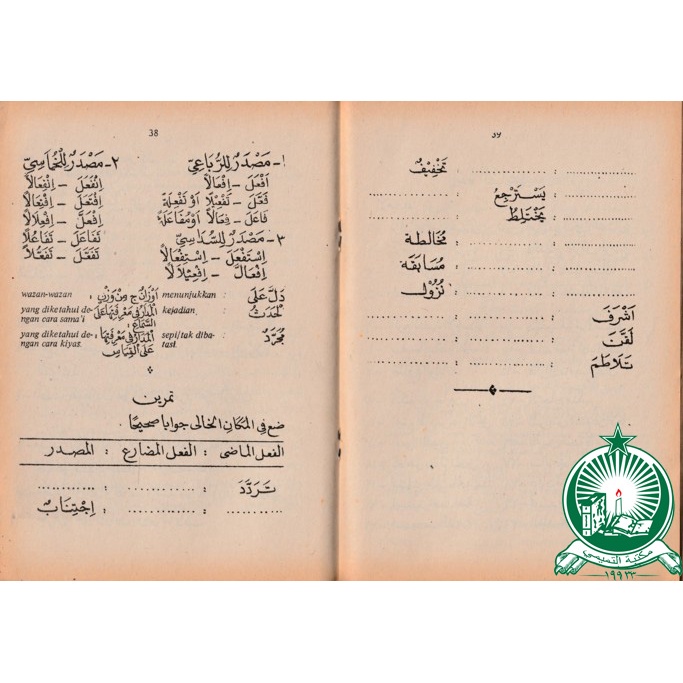 38
١- مَصْدَرٌ لِلرُّبَاعِيِّ
أَفْعَلَ - إِفْعَالًا
فَعَّلَ - تَفْعِيْلًا أَوْ تَفْعِلَةً
فَاعَلَ - فِعَالًا أَوْ مُفَاعَلَةً
٢- مَصْدَرٌ لِلْخُمَاسِيِّ
اِنْفَعَلَ - اِنْفِعَالًا
اِفْتَعَلَ - اِفْتِعَالًا
اِفْعَلَّ - اِفْعِلَالًا
تَفَاعَلَ - تَفَاعُلًا
تَفَعَّلَ - تَفَعُّلًا
٣- مَصْدَرٌ لِلسُّدَاسِيِّ
اِسْتَفْعَلَ - اِسْتِفْعَالًا
اِفْعَالَّ - اِفْعِيْلَالًا
دَلَّ عَلَى : menunjukkan
لْحَدَثُ : kejadian.
مُجَرَّدٌ : sepi/tak diba-
tasi.
أَوْزَانٌ ج مِنْ وَزْنٍ : wazan-wazan
yang diketahui de-
ngan cara sama'i
السَّمَاعُ
yang diketahui de-
ngan cara kiyas.
عَلَى الْقِيَاسِ
تمرين
ضع في المكان الخالى جوابا صحيحًا.
الفعل الماضى : الفعل المضارع : المصدر
تَرَدَّدَ : ............ : ............
............ : ............ : اِجْتِنَابٌ
............ : ............ : تَخْفِيْفٌ
............ : يَسْتَرْجِعُ : ............
............ : يَخْتَلِطُ : ............
............ : ............ : مُخَالَطَة
............ : ............ : مُسَابَقَة
............ : ............ : نُزُوْل
أَشْرَفَ : ............ : ............
لَقَّنَ : ............ : ............
تَلَاطَمَ : ............ : ............
مكتبة التميمي